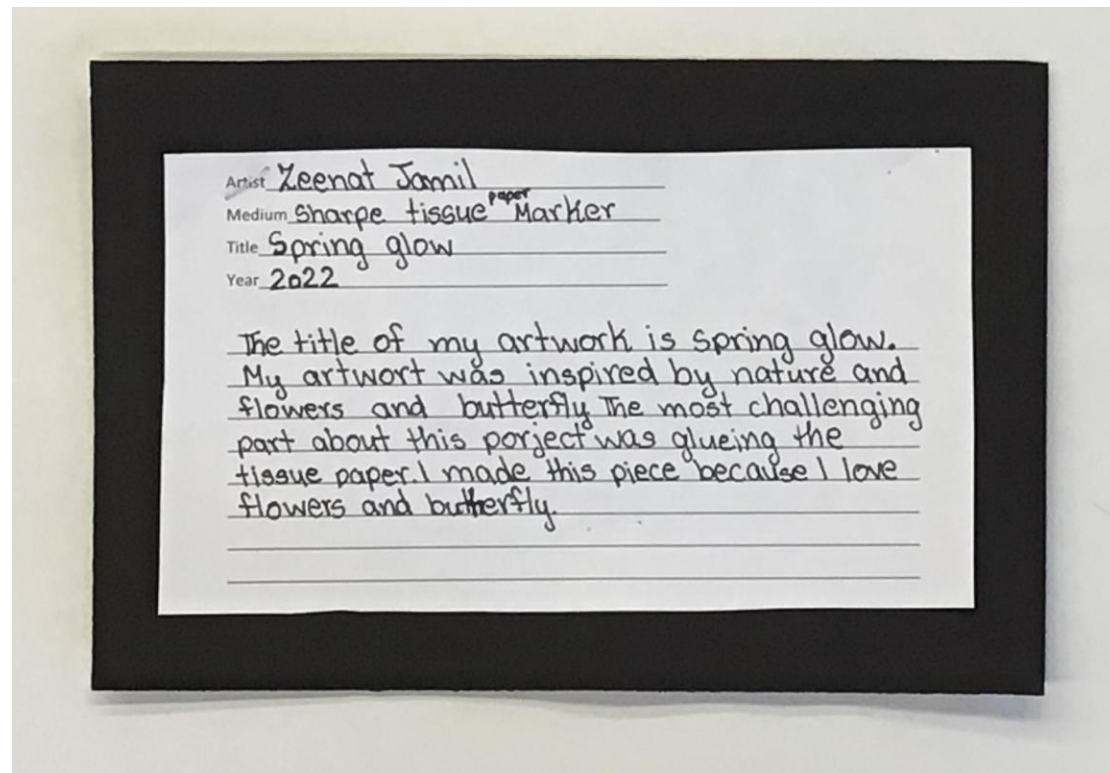 Artist Zeenat Jamil
Medium Sharpe tissue paper Marker
Title Spring glow
Year 2022
The title of my artwork is spring glow.
My artwort was inspired by nature and
flowers and butterfly The most challenging
part about this porject was glueing the
tissue paper. I made this piece because I love
flowers and butterfly.